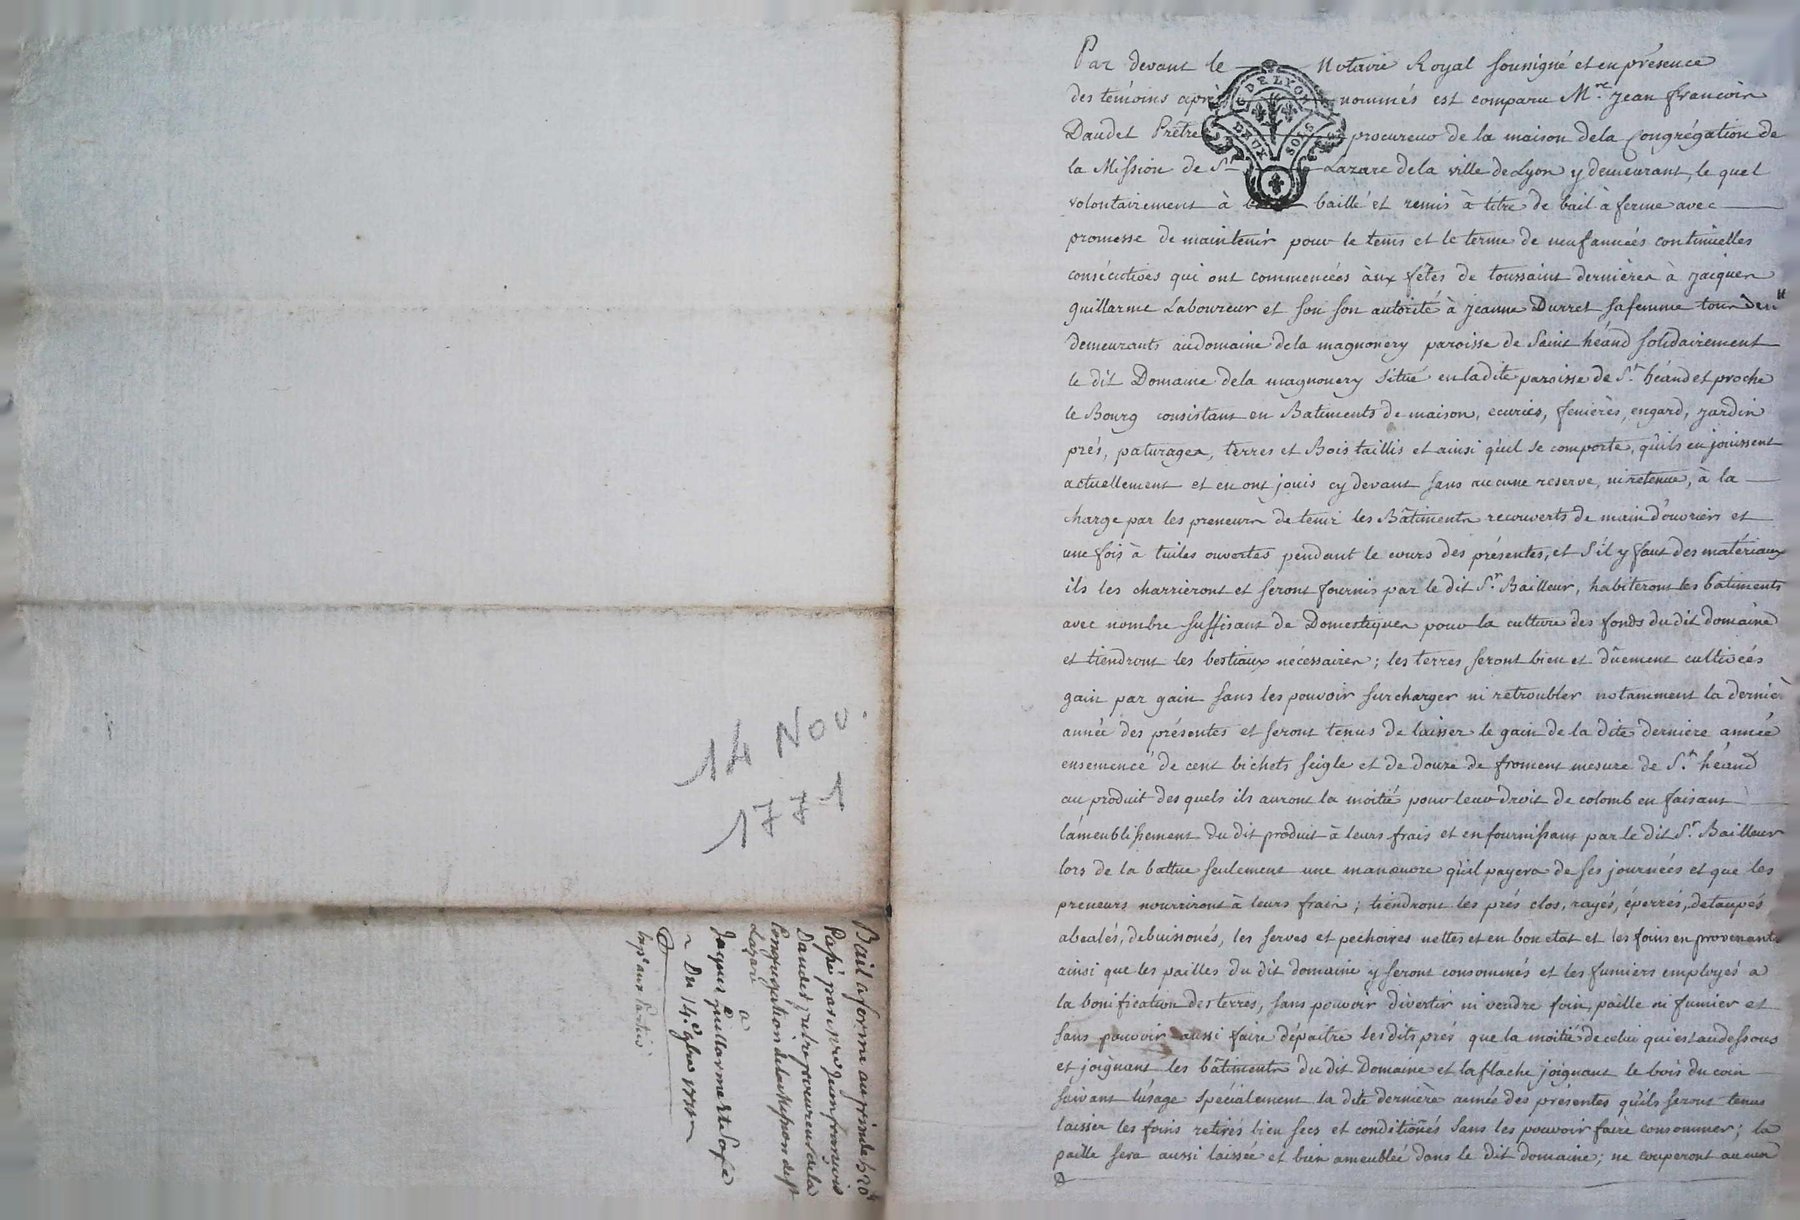 14 Nov.
1771
Bail a ferme au prix de 520#
Passé par Mre Jean françois
Daudet, prêtre procureur de la
Congregation de la Mission de St
Lazare
a
Jacques Guillarme et sa fe
Du 14e 9bre 1771
Par devant le Notaire Royal soussigné et en présence
des temoins après nommés est comparu Mre. Jean francois
Daudet Prêtre procureur de la maison de la Congrégation de
la Mission de St Lazare de la ville de Lyon y demeurant, le quel
volontairement à baillé et remis à titre de bail à ferme avec
promesse de maintenir pour le tems et le terme de neuf années continuelles
consécutives qui ont commencées aux fêtes de toussaint dernières à Jacques
Guillarme Laboureur et sou son autorité à Jeanne Durret sa femme
demeurants au domaine de la magnonery paroisse de Saint héand solidairement
le dit Domaine de la magnonery situé en la dite paroisse de St. héand et proche
le Bourg consistant en Batiments de maison, ecuries, fenières, engard, jardin
prés, paturages, terres et Bois taillis et ainsi qu'il se comporte, qu'ils en jouissent
actuellement et en ont jouis cy devant sans aucune reserve, ni retenue, à la
charge par les preneurs de tenir les Bâtiments recouverts de main d'ouvriers et
une fois à tuiles ouvertes pendant le cours des présentes, et s'il y faut des matériaux
ils les charrieront et seront fournis par le dit Sr. Bailleur, habiteront les batiments
avec nombre suffisant de Domestiques pour la culture des fonds du dit domaine
et tiendront les bestiaux nécessaires; les terres seront bien et dûement cultivées
gain par gain sans les pouvoir surcharger ni retroubler notamment la dernier
année des présentes et seront tenus de laisser le gain de la dite derniere année
ensemencé de cent bichets seigle et de douze de froment mesure de St. héand
au produit des quels ils auront la moitié pour leur droit de colomb en faisant
l'ameublissement du dit produit à leurs frais et en fournissant par le dit Sr. Bailleur
lors de la battue seulement une manœuvre qu'il payera de ses journées et que les
preneurs nourriront à leurs frais; tiendront les prés clos, rayés, éperrés, detaupés
abealés, debuissonés, les serves et pechoires nettes et en bon etat et les foins en provenants
ainsi que les pailles du dit domaine y seront consommés et les fumiers employés a
la bonification des terres, sans pouvoir divertir ni vendre foin, paille ni fumier et
sans pouvoir aussi faire dépaitre les dits prés que la moitié de celui qui est au dessous
et joignant les bâtiments du dit Domaine et la flache joignant le bois du coin
suivant l'usage spécialement la dite dernière année des présentes qu'ils seront tenus
laisser les foins retirés bien secs et conditionés sans les pouvoir faire consommer; la
paille sera aussi laissée et bien ameublée dans le dit domaine; ne couperont aucun